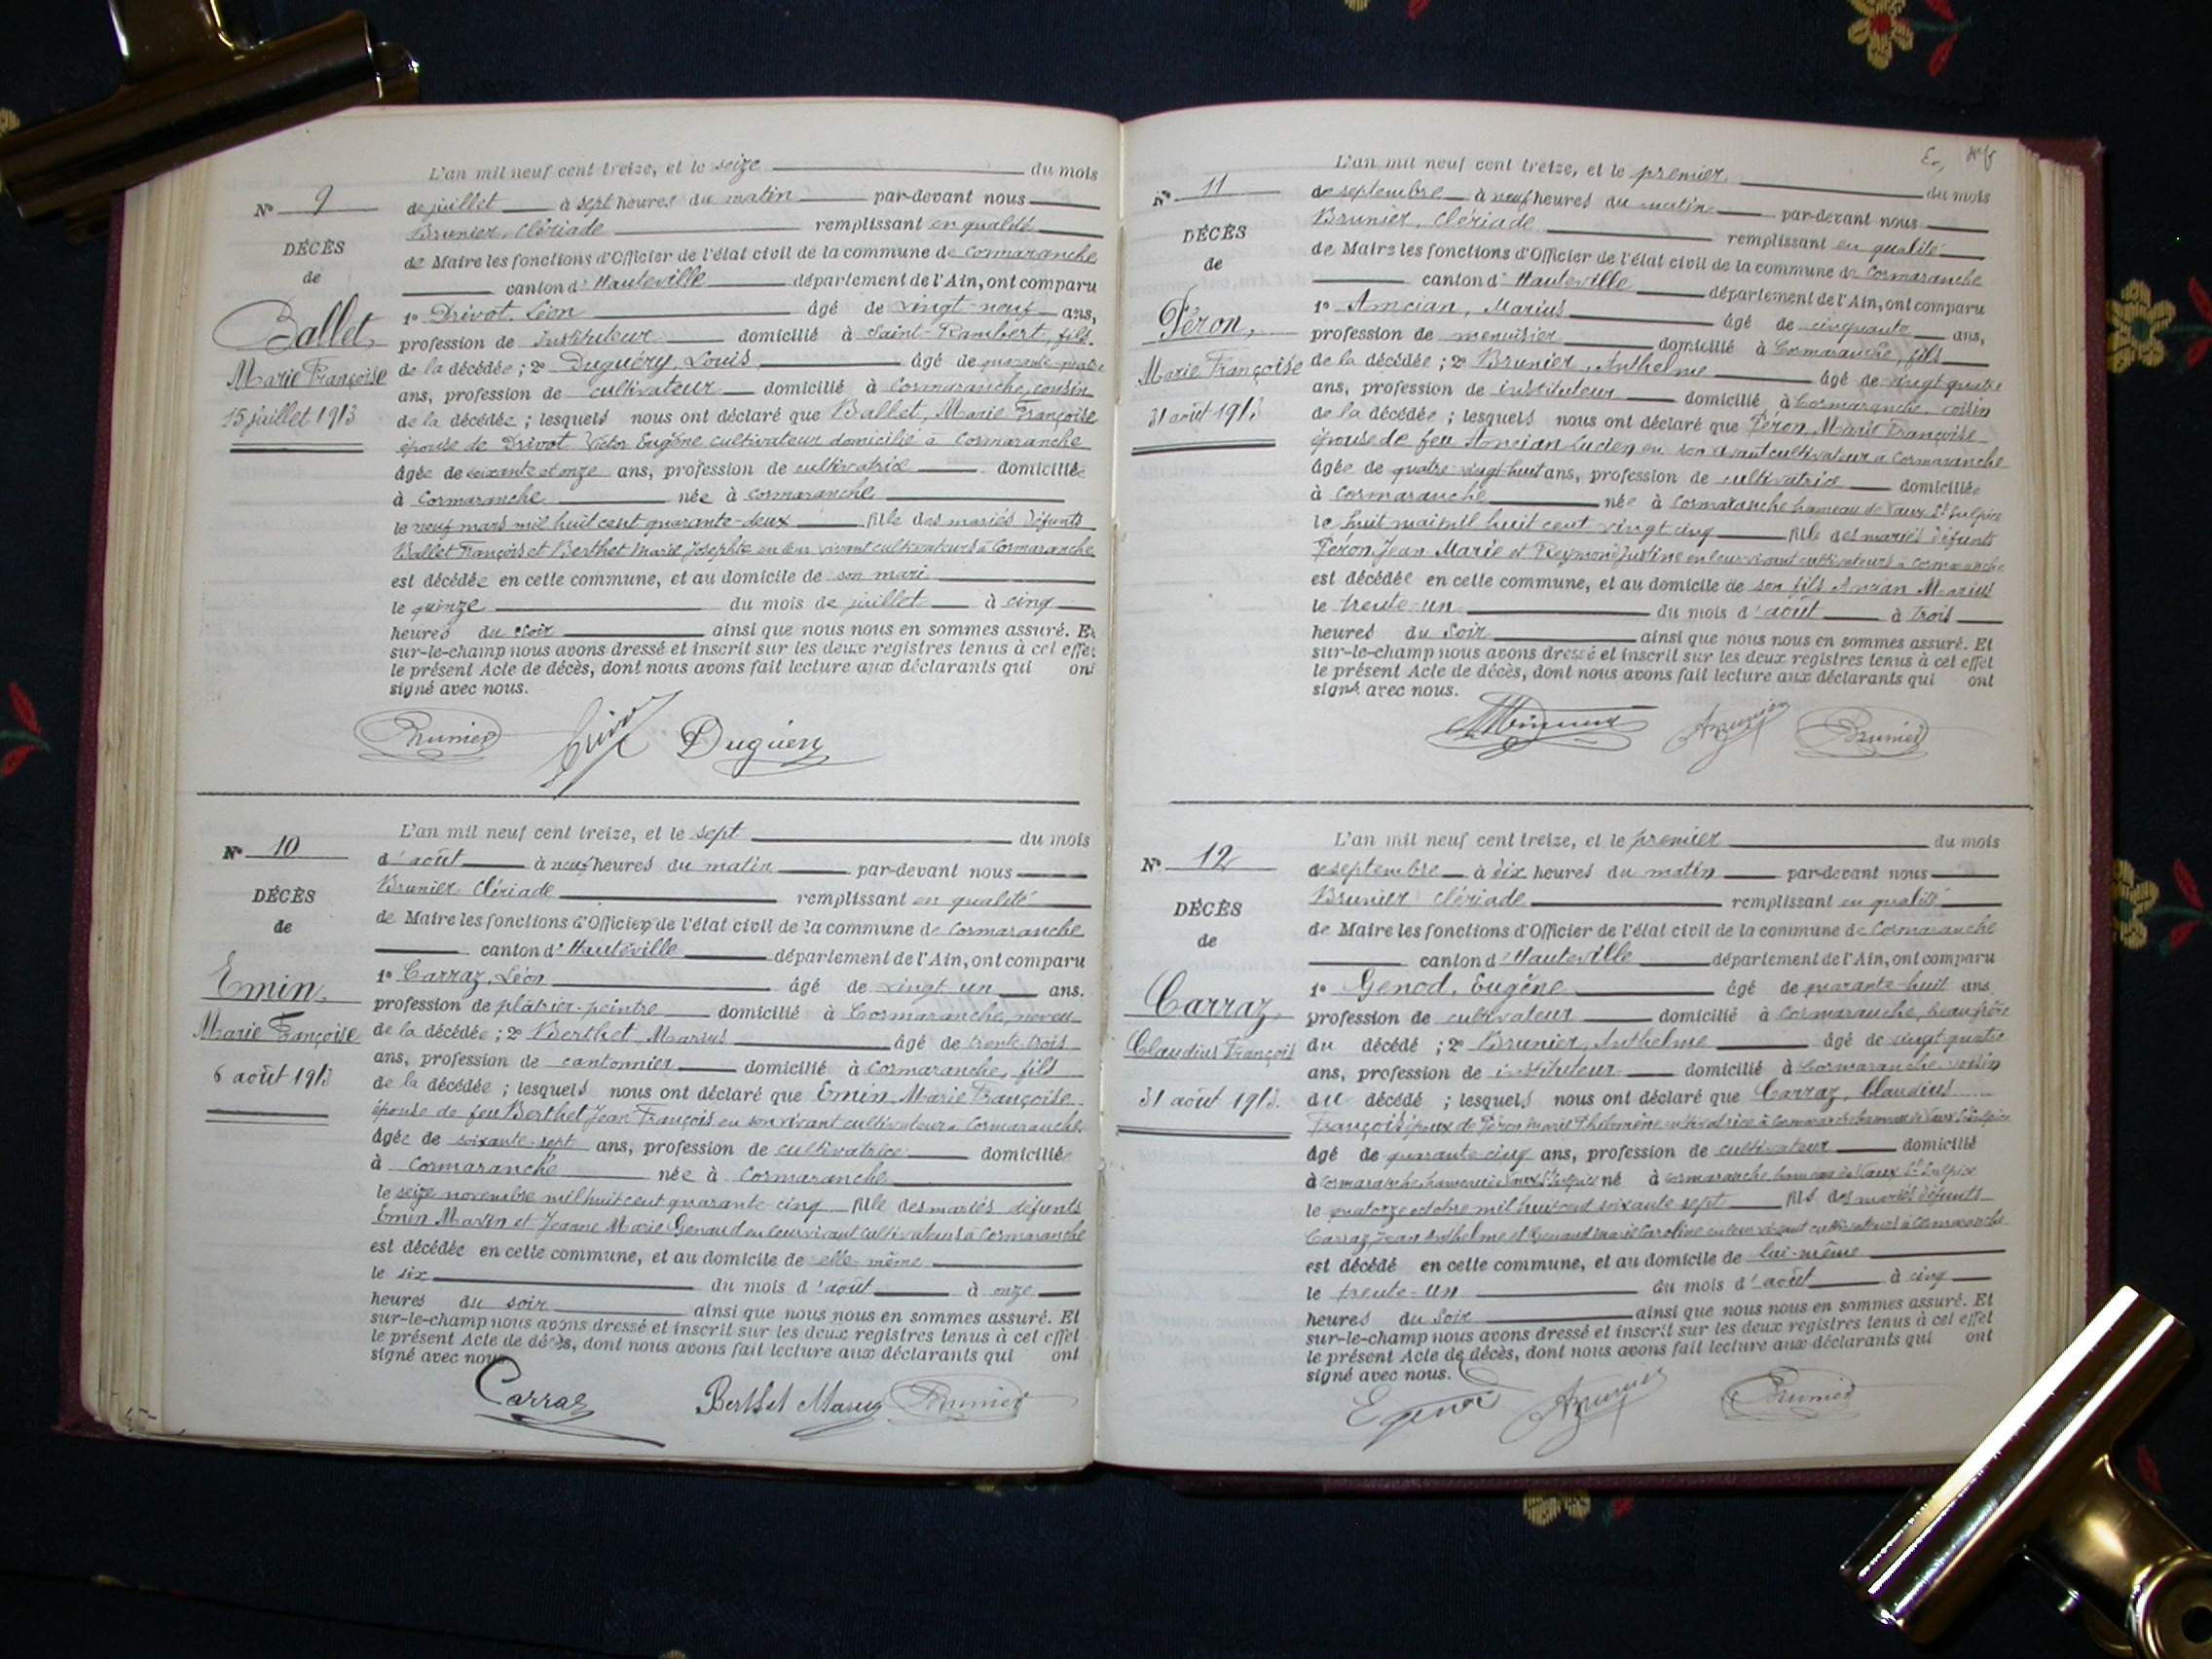 L'an mil neuf cent treize, et le seize du mois
N° 9
de juillet à sept heures du matin par-devant nous
Brunier, Clériade remplissant en qualité
DÉCÈS
de Maire les fonctions d'Officier de l'état civil de la commune de Cormaranche
de
canton d'Hauteville département de l'Ain, ont comparu
Ballet,
1° Drivot, Léon âgé de vingt-neuf ans,
profession de Instituteur domicilié à Saint-Rambert, fils
Marie Françoise
de la décédée ; 2° Duguéry, Louis, âgé de quarante-quatre
ans, profession de cultivateur domicilié à Cormaranche, cousin
15 juillet 1913
de la décédée ; lesquels nous ont déclaré que Ballet, Marie Françoise
épouse de Drivot Victor Eugène cultivateur domicilié à Cormaranche
âgée de soixante et onze ans, profession de cultivatrice domiciliée
à Cormaranche née à Cormaranche
le neuf mars mil huit cent quarante-deux fille des mariés défunts
Ballet François et Berthet Marie Josephte en leur vivant cultivateurs à Cormaranche
est décédée en cette commune, et au domicile de son mari
le quinze du mois de juillet à cinq
heures du soir ainsi que nous nous en sommes assuré. Et
sur-le-champ nous avons dressé et inscrit sur les deux registres tenus à cet effet
le présent Acte de décès, dont nous avons fait lecture aux déclarants qui ont
signé avec nous.
Brunier Duguéry
L'an mil neuf cent treize, et le sept du mois
N° 10
d'août à neuf heures du matin par-devant nous
Brunier Clériade remplissant en qualité
DÉCÈS
de Maire les fonctions d'Officier de l'état civil de la commune de Cormaranche
de
canton d'Hauteville département de l'Ain, ont comparu
Emin,
1° Carraz, Léon âgé de vingt un ans.
profession de plâtrier-peintre domicilié à Cormaranche, neveu
Marie Françoise
de la décédée ; 2° Berthet, Marius âgé de trente trois
ans, profession de cantonnier domicilié à Cormaranche, fils
6 août 1913
de la décédée ; lesquels nous ont déclaré que Emin, Marie Françoise
épouse de feu Berthet Jean François en son vivant cultivateur à Cormaranche
âgée de soixante-sept ans, profession de cultivatrice domiciliée
à Cormaranche née à Cormaranche
le seize novembre mil huit cent quarante cinq fille des mariés défunts
Emin Marin et Jeanne Marie Genaud en leur vivant cultivateurs à Cormaranche
est décédée en cette commune, et au domicile de elle-même
le six du mois d'août à onze
heures du soir ainsi que nous nous en sommes assuré. Et
sur-le-champ nous avons dressé et inscrit sur les deux registres tenus à cet effet
le présent Acte de décès, dont nous avons fait lecture aux déclarants qui ont
signé avec nous
Carraz Berthet Marius Brunier
L'an mil neuf cent treize, et le premier du mois
N° 11
de septembre à neuf heures du matin par-devant nous
Brunier, Clériade remplissant en qualité
DÉCÈS
de Maire les fonctions d'Officier de l'état civil de la commune de Cormaranche
de
canton d'Hauteville département de l'Ain, ont comparu
Péron,
1° Ancian, Marius âgé de cinquante ans,
profession de menuisier domicilié à Cormaranche, fils
Marie Françoise
de la décédée ; 2° Brunier, Anthelme âgé de vingt quatre
ans, profession de instituteur domicilié à Cormaranche, voisin
31 août 1913
de la décédée ; lesquels nous ont déclaré que Péron, Marie Françoise
épouse de feu Ancian Lucien en son vivant cultivateur à Cormaranche
âgée de quatre-vingt-huit ans, profession de cultivatrice domiciliée
à Cormaranche née à Cormaranche hameau de Vaux St Sulpice
le huit mai mil huit cent vingt cinq fille des mariés défunts
Péron Jean Marie et Reymond Justine en leur vivant cultivateurs à Cormaranche
est décédée en cette commune, et au domicile de son fils Ancian Marius
le trente-un du mois d'août à trois
heures du soir ainsi que nous nous en sommes assuré. Et
sur-le-champ nous avons dressé et inscrit sur les deux registres tenus à cet effet
le présent Acte de décès, dont nous avons fait lecture aux déclarants qui ont
signé avec nous.
Brunier Brunier
L'an mil neuf cent treize, et le premier du mois
N° 12
de septembre à dix heures du matin par-devant nous
Brunier Clériade remplissant en qualité
DÉCÈS
de Maire les fonctions d'Officier de l'état civil de la commune de Cormaranche
de
canton d'Hauteville département de l'Ain, ont comparu
Carraz,
1° Genod, Eugène âgé de quarante-huit ans,
profession de cultivateur domicilié à Cormaranche, beau-frère
Claudius François
du décédé ; 2° Brunier, Anthelme âgé de vingt-quatre
ans, profession de instituteur domicilié à Cormaranche, voisin
31 août 1913.
du décédé ; lesquels nous ont déclaré que Carraz, Claudius
François époux de Péron Marie Philomène cultivatrice à Cormaranche hameau de Vaux St Sulpice
âgé de quarante-cinq ans, profession de cultivateur domicilié
à Cormaranche hameau de Vaux St Sulpice né à Cormaranche hameau de Vaux St Sulpice
le quatorze octobre mil huit cent soixante sept fils des mariés défunts
Carraz, Jean Anthelme et Genaud Marie Caroline en leur vivant cultivateurs à Cormaranche
est décédé en cette commune, et au domicile de lui-même
le trente-un du mois d'août à cinq
heures du soir ainsi que nous nous en sommes assuré. Et
sur-le-champ nous avons dressé et inscrit sur les deux registres tenus à cet effet
le présent Acte de décès, dont nous avons fait lecture aux déclarants qui ont
signé avec nous.
E Genod Brunier Brunier